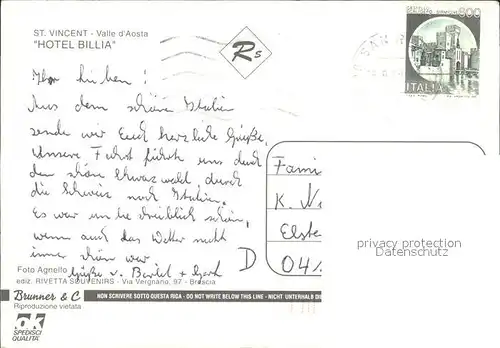 ST. VINCENT - Valle d'Aosta
"HOTEL BILLIA"
Ihr Lieben!
Aus dem schönen Italien
sende wir Euch herzliche Grüße.
Unsere Fahrt führt uns durch
den schönen Schwarzwald, durch
die Schweiz nach Italien.
Es war unbeschreiblich schön,
wenn auch das Wetter nicht
immer schön war
Foto Agnello
Grüße v. Bärbel +
ediz. RIVETTA SOUVENIRS - Via Vergnano, 97 - Brescia
Brunner & C
Riproduzione vietata
NON SCRIVERE SOTTO QUESTA RIGA - DO NOT WRITE BELOW THIS LINE - NICHT UNTERHALB DI
ok
SPEDISCI
QUALITÀ
Rs
800
ITALIA
Fami
K. N
Elste
D 04
privacy protection
Datenschutz